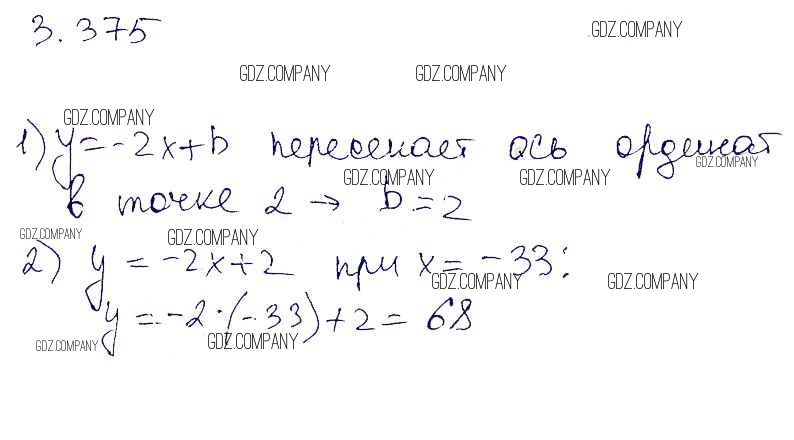 3.375
GDZ.COMPANY
GDZ.COMPANY GDZ.COMPANY
GDZ.COMPANY
1) y = -2x+b пересекает ось ординат
GDZ.COMPANY
GDZ.COMPANY GDZ.COMPANY
в точке 2 → b = 2
GDZ.COMPANY GDZ.COMPANY
2) y = -2x+2 при x = -33:
GDZ.COMPANY GDZ.COMPANY
y = -2·(-33)+2 = 68
GDZ.COMPANY GDZ.COMPANY